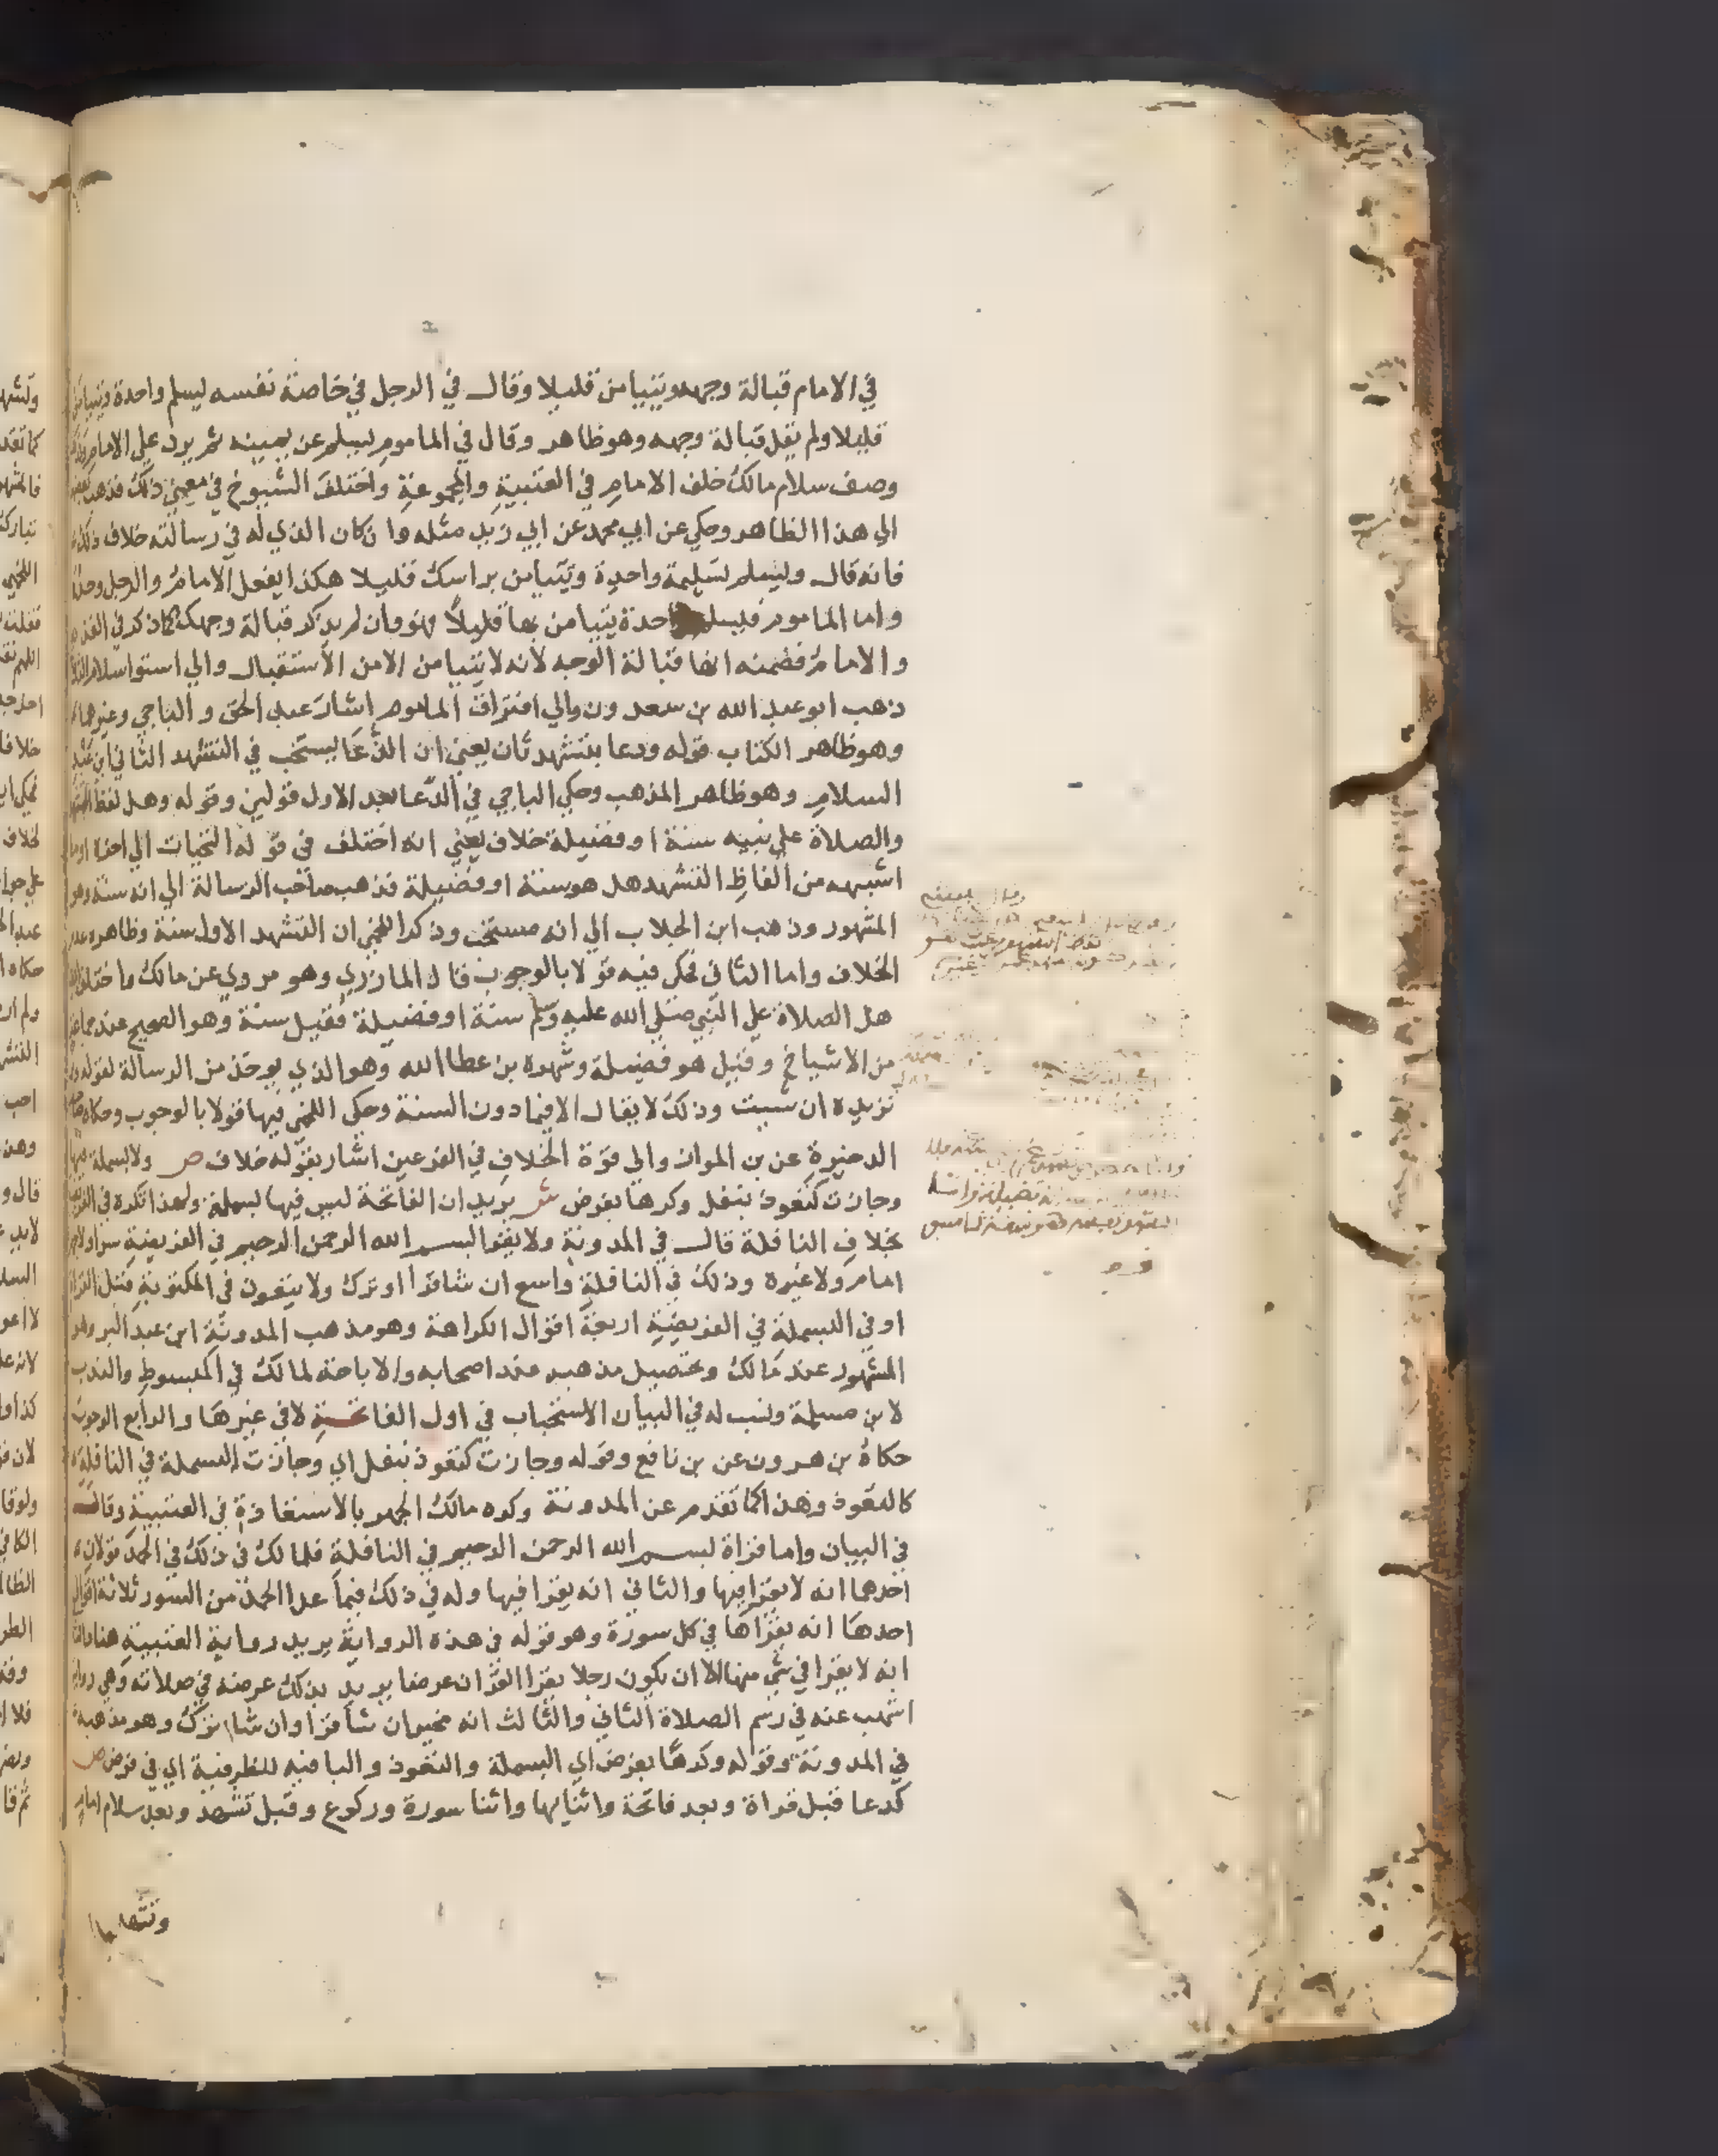 في الامام قبالة وجهه ويتيامن قليلا وقال في الرجل في خاصة نفسه ليسلم واحدة ويتيامن
قليلا ولم يقل قبالة وجهه وهو ظاهر وقال في الماموم ليسلم عن يمينه ثم يرد علي الامام
وصف سلام مالك خلف الامام في العتبية والمجموعة واختلف الشيوخ في معني ذلك فذهب بعضهم
الي هذا الظاهر وحكي عن ابي محمد عن ابي زيد مثله وان كان الذي له في رسالته خلاف ذلك
فانه قال وليسلم تسليمة واحدة ويتيامن براسك قليلا هكذا يفعل الامام والرجل وحده
واما الماموم فيسلم واحدة يتيامن بها قليلا فهو وان لم يذكر قبالة وجهك كما ذكر في الفذ
والامام فضمنه انها قبالة الوجه لانه لا يتيامن الا من الاستقبال والي استوا سلام
ذهب ابو عبد الله بن سعدون والي افتراق الماموم اشار عبد الحق والباجي وغيرهما
وهو ظاهر الكتاب قوله ودعا بتشهد ثان يعني ان الدعا يستحب في التشهد الثاني
السلام وهو ظاهر المذهب وحكي الباجي في الدعا بعد الاول قولين وقوله وهل لفظ التشهد
والصلاة علي نبيه سنة او فضيلة خلاف يعني انه اختلف في قوله التحيات الي اخره او ما
اشبهه من الفاظ التشهد هل هو سنة او فضيلة فذهب صاحب الرسالة الي انه سنة وهو
المشهور وذهب ابن الجلاب الي انه مستحب وذكر اللخمي ان التشهد الاول سنة وظاهره عدم
الخلاف واما الثاني فحكى فيه قولا بالوجوب قال المازري وهو مروي عن مالك واختلف
هل الصلاة علي النبي صلي الله عليه وسلم سنة او فضيلة فقيل سنة وهو الصحيح عند جماعة
من الاشياخ وقيل هو فضيلة وشهره بن عطا الله وهو الذي يوخذ من الرسالة لقوله
تزيده ان شيت وذلك لا يقال الا فيما دون السنة وحكي اللخمي فيها قولا بالوجوب وحكاه
الدخيرة عن بن المواز والي قوة الخلاف في الفرعين اشار بقوله خلاف ص ولا بسملة فيها
وجازت كتعوذ بنفل وكرها بفرض ش يريد ان الفاتحة ليس فيها بسملة ولهذا تكره في الفريضة
بخلاف النافلة قال في المدونة ولا يقرا بسم الله الرحمن الرحيم في الفريضة سرا ولا جهرا
امام ولا غيره وذلك في النافلة واسع ان شا قرا او ترك ولا يتعوذ في المكتوبة قبل القراة
او في البسملة في الفريضة اربعة اقوال الكراهة وهو مذهب المدونة ابن عبد البر وهو
المشهور عند مالك وتحصيل مذهبه عند اصحابه والاباحة لمالك في المبسوط والندب
لابن مسلمة ونسب له في البيان الاستحباب في اول الفاتحة لا في غيرها والرابع الوجوب
حكاه بن هرون عن بن نافع وقوله وجازت كتعوذ بنفل اي وجازت البسملة في النافلة
كالتعوذ وهذا كما تقدم عن المدونة وكره مالك الجهر بالاستعاذة في العتبية وقال
في البيان واما قراة بسم الله الرحمن الرحيم في النافلة فلمالك في ذلك في الحمد قولان
احدهما انه لا يقرا فيها والثاني انه يقرا فيها وله في ذلك فيما عدا الحمد من السور ثلاثة اقوال
احدها انه يقراها في كل سورة وهو قوله في هذه الرواية يريد رواية العتبية هنا والثاني
انه لا يقرا في شي منها الا ان يكون رجلا يقرا القران عرضا يريد بذلك عرضه في صلاته وهي رواية
اشهب عنه في رسم الصلاة الثاني والثالث انه مخير ان شا قرا وان شا ترك وهو مذهبه
في المدونة وقوله وكرها بفرض اي البسملة والتعوذ والبا فيه للظرفية اي في فرض ص
كدعا قبل قراة وبعد فاتحة واثنايها واثنا سورة وركوع وقبل تشهد وبعد سلام امام